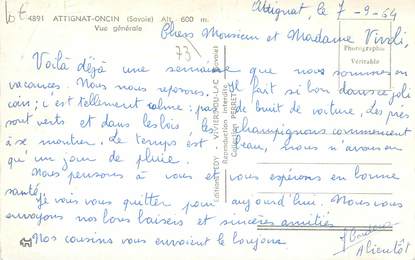 4891 ATTIGNAT-ONCIN (Savoie) Alt. 600 m.
Vue générale
Attignat, le 7-9-64
Chers Monsieur et Madame Vivoli,
73
Photographie
Véritable
Voilà déjà une semaine que nous sommes en
vacances. Nous nous reposons. Il fait si bon dans ce joli
coin; c'est tellement calme: pas de bruit de voiture. Les prés
sont verts et dans les bois, les champignons commencent
à se montrer. Le temps est beau, nous n'avons eu
qu'un jour de pluie.
Nous pensons à vous et vous espérons en bonne
santé.
Je vais vous quitter pour aujourd'hui. Nous vous
envoyons nos bons baisers et sincères amitiés
Nos cousins vous envoient le bonjour.
A bientôt
VIVIERS-DU-LAC (Savoie)
Reproduction interdite